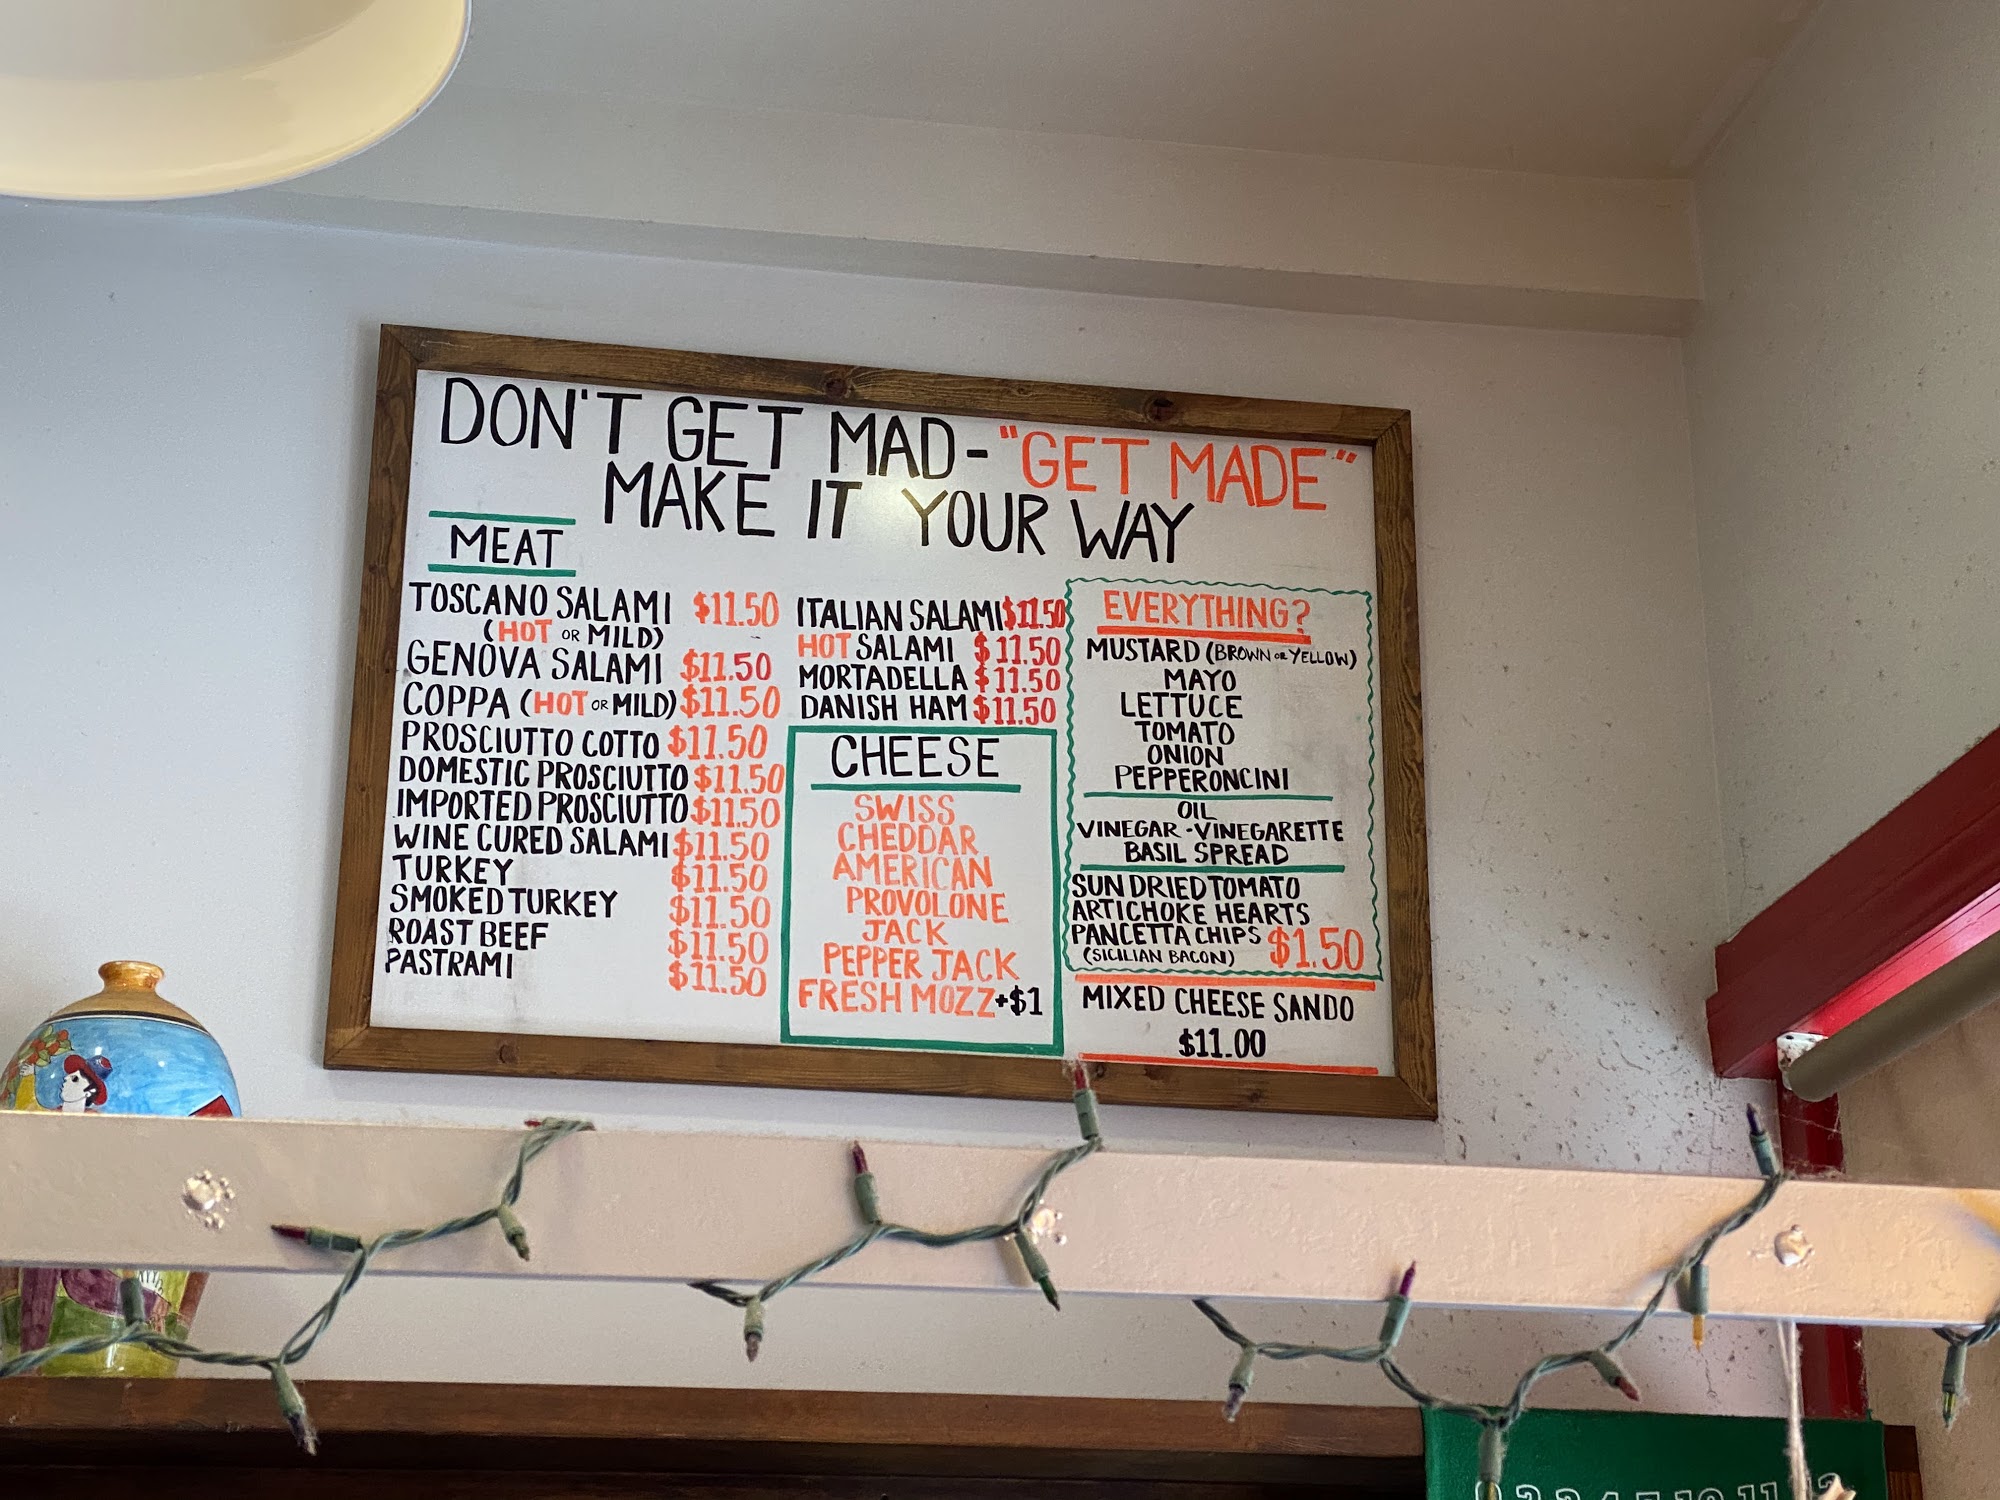 DON'T GET MAD-"GET MADE"
MAKE IT YOUR WAY
MEAT
TOSCANO SALAMI $11.50
(HOT OR MILD)
GENOVA SALAMI $11.50
COPPA (HOT OR MILD) $11.50
PROSCIUTTO COTTO $11.50
DOMESTIC PROSCIUTTO $11.50
IMPORTED PROSCIUTTO $11.50
WINE CURED SALAMI $11.50
TURKEY $11.50
SMOKED TURKEY $11.50
ROAST BEEF $11.50
PASTRAMI $11.50
ITALIAN SALAMI $11.50
HOT SALAMI $11.50
MORTADELLA $11.50
DANISH HAM $11.50
CHEESE
SWISS
CHEDDAR
AMERICAN
PROVOLONE
JACK
PEPPER JACK
FRESH MOZZ +$1
EVERYTHING?
MUSTARD (BROWN OR YELLOW)
MAYO
LETTUCE
TOMATO
ONION
PEPPERONCINI
OIL
VINEGAR - VINEGARETTE
BASIL SPREAD
SUN DRIED TOMATO
ARTICHOKE HEARTS
PANCETTA CHIPS $1.50
(SICILIAN BACON)
MIXED CHEESE SANDO
$11.00